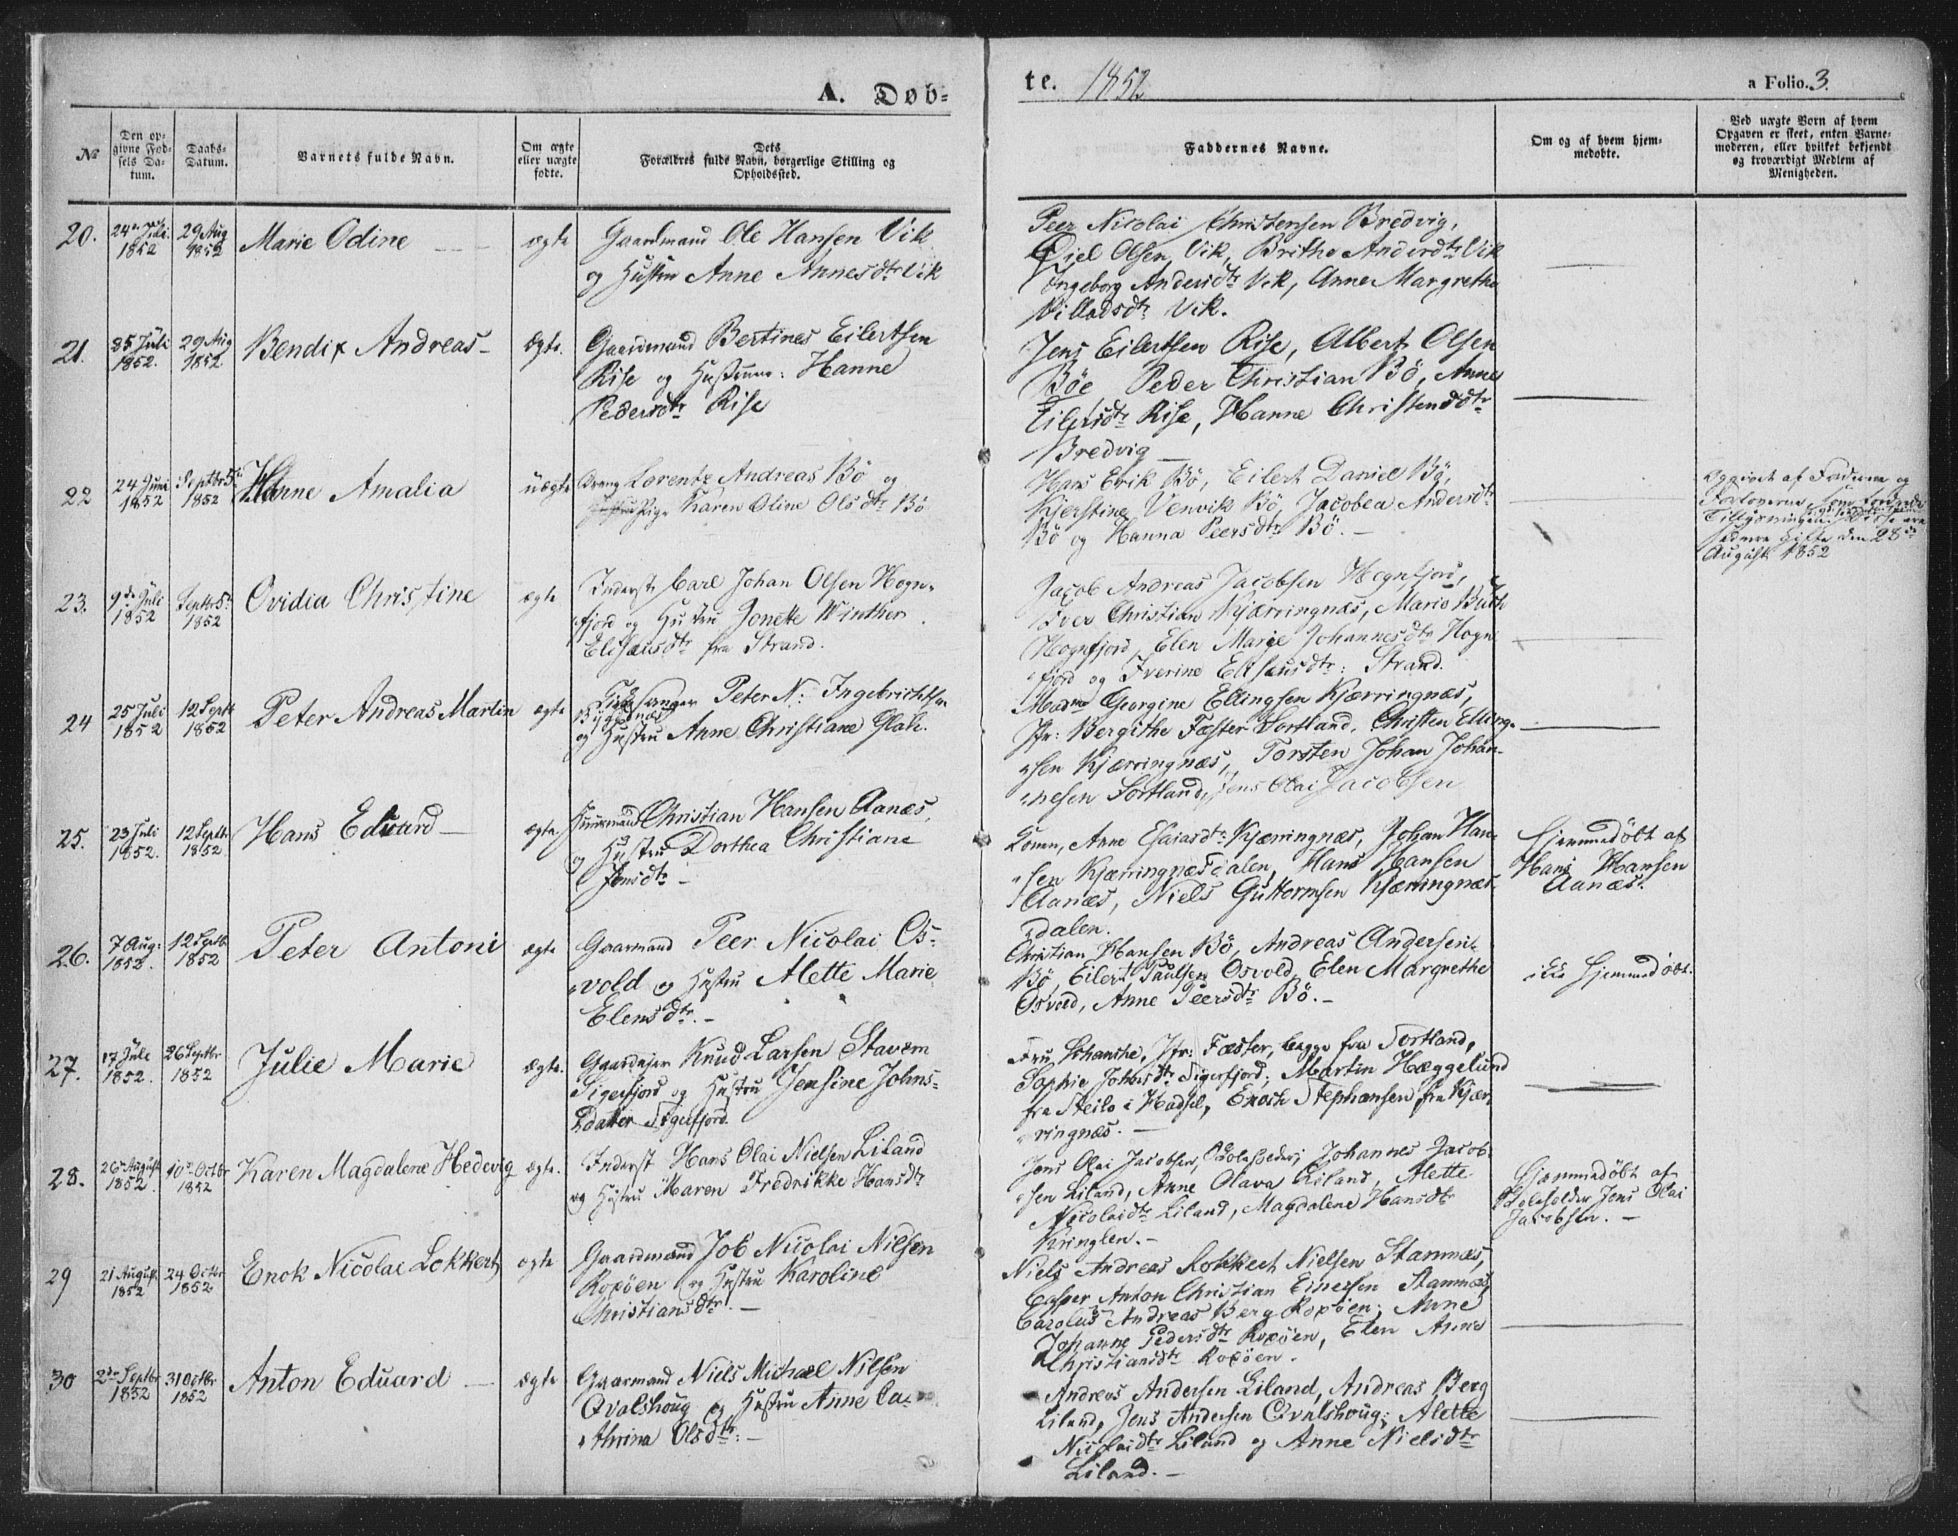 A. Døb-
te. 1852
a Folio. 3.
No
Den op-
givne Fød-
sels Da-
tum.
Daabs-
Datum.
Barnets fulde Navn.
Om ægte
eller uægte
fødte.
Dets
Forældres fulde Navn, borgerlige Stilling og
Opholdssted.
Faddernes Navne.
Om og af hvem hjem-
medøbte.
Ved uægte Børn af hvem
Opgaven er skeet, enten Barne-
moderen, eller hvilket bekjendt
og troværdigt Medlem af
Menigheden.
20.
24de Juli
1852
29 Aug
1852
Marie Odine
ægte
Gaardmand Ole Hansen Vik
og Hustru Anne Annesdtr Vik
Peer Nicolai Christensen Bredvig,
Olsen Vik, Brithe Andersdtr Vik
Ingeborg Andersdtr Vik, Anne Margrethe
Villadsdtr Vik.
21.
25 Juli
1852.
29 Aug
1852
Bendix Andreas
ægte.
Gaardmand Bertines Eilertsen
Rise og Hustrue: Hanne
Pedersdtr Rise
Jens Eilertsen Rise, Albert Olsen
Böe Peder Christian Bö, Anne
Eilersdtr Rise, Hanne Christensdtr
Bredvig
22
24 Juni
1852
Septbr 5te
1852
Hanne Amalia
uægte
Dreng Lorentz Andreas Bö og
Pige Karen Oline Olsdtr Bö
Hans Erik Bö, Eilert Daniel Bö,
Kjerstine Venvik Bö, Jacobea Andersdtr
Bö og Hanna Peersdtr Bö.
Opgivet af Faderen og
Forloverne, som fordrede
Tillysningen. Disse ere
sedere gifte den 28de
August 1852
23.
9de Juli
1852
Septbr 5te
1852
Ovidia Christine
ægte
Inderst Carl Johan Olsen Hogn-
fjord og Hustru Jonette Winther
Eliseusdtr fra Strand.
Jacob Andreas Jacobsen Hognfjord,
Iver Christian Kjærringnæs, Marie Buth
Hognfjord, Elen Marie Johannesdtr Hogn-
fjord og Iverine Eliseusdtr: Strand.
24
25 Juli
1852
12 Septbr
1852
Peter Andreas Martin
ægte
Kirkesanger Peter N: Ingebrichtsen
Bygdenæs
og Hustru Anne Christiane Glak.
Madme Georgine Ellingsen Kjærringnæs,
Jfr: Bergithe Fæster Sortland. Christen Elling-
sen Kjærringnæs, Torsten Johan Johan-
nesen Sortland, Jens Olai Jacobsen
25.
23 Juli
1852.
12 Septbr
1852.
Hans Eduard
ægte
Huusmand Christian Hansen Aanæs,
og Hustru Dorthea Christiane
Jensdtr
Anne Esaiasdtr Kjærringnæs, Johan Han-
sen Kjærringnæsdalen, Hans Hansen
Aanæs, Niels Guttormsen Kjærringnæs-
dalen.
Hjemmedøbt af
Hans Hansen
Aanæs.
26.
7 Aug:
1852.
12 Septbr
1852
Peter Antoni
ægte
Gaarmand Peer Nicolai Os-
vold og Hustru Alette Marie
Elensdtr.
Christian Hansen Bö, Andreas Andersen
Bö, Eilert Paulsen Osvold, Elen Margrethe
Osvold, Anne Peersdtr Bö.
Ei Hjemmedøbt.
27.
17 Juli
1852.
26 Septbr
1852
Julie Marie
ægte.
Gaardejer Knud Larsen Stavem
Sigerfjord og Hustru Jensine Johns-
datter Sigerfjord.
Fru Schanche, Jfr: Fæster, begge fra Sortland,
Sophie Johnsdtr Sigerfjord, Martin Hæggelund
fra Steilo i Hadsel, Enoch Stephansen fra Kjær-
ringnæs.
28.
26 August
1852.
10de Octbr
1852
Karen Magdalene Hedevig
ægte.
Inderst Hans Olai Nielsen Liland
og Hustru Maren Fredrikke Hansdtr
Jens Olai Jacobsen, Skoleholder, Johannes Jacob-
sen Liland, Anne Olava Liland, Alette
Nicolaidtr Liland, Magdalene Hansdtr
Kringlen.
Hjemmedøbt af
Skoleholder Jens Olai
Jacobsen.
29
21 August
1852
24 Octbr
1852
Enok Nicolai Lokkert
ægte
Gaardmand Job Nicolai Nilsen
Roxöen og Hustru Karoline
Christiansdtr.
Niels Andreas Lokkert Nielsen Stamnæs,
Casper Anton Christian Einersen Stamnæs,
Carolus Andreas Berg Roxöen, Anne
Johanne Pedersdtr Roxöen, Elen Anne
Christiansdtr Roxöen.
30
2den Septbr
1852
31 Octbr
1852
Anton Eduard
ægte
Gaarmand Niels Michael Nilsen
Qvalshoug og Hustru Anne Ca-
thrina Olsdtr.
Andreas Andersen Liland, Andreas Berg
Liland, Jens Andersen Qvalshoug, Alette
Nicolaidtr Liland og Anne Nielsdtr
Liland.